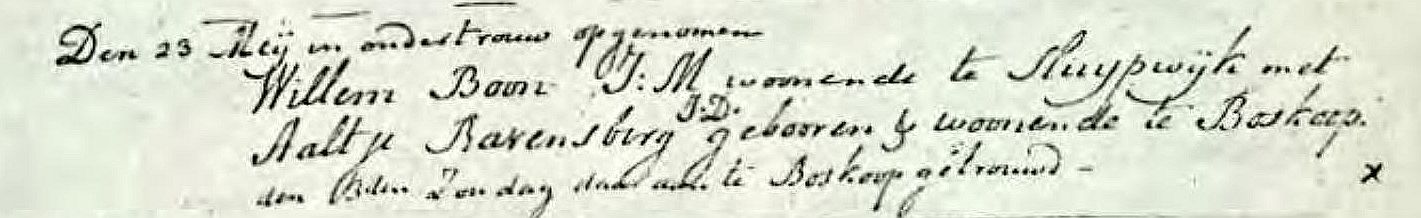 Den 23 Meij in ondertrouw opgenomen
Willem Boon J:M woonende te Sluypwijk met
Aaltje Ravensberg J:D. gebooren & woonende te Boskoop.
den 3den Zondag daar aan te Boskoop getrouwd - x